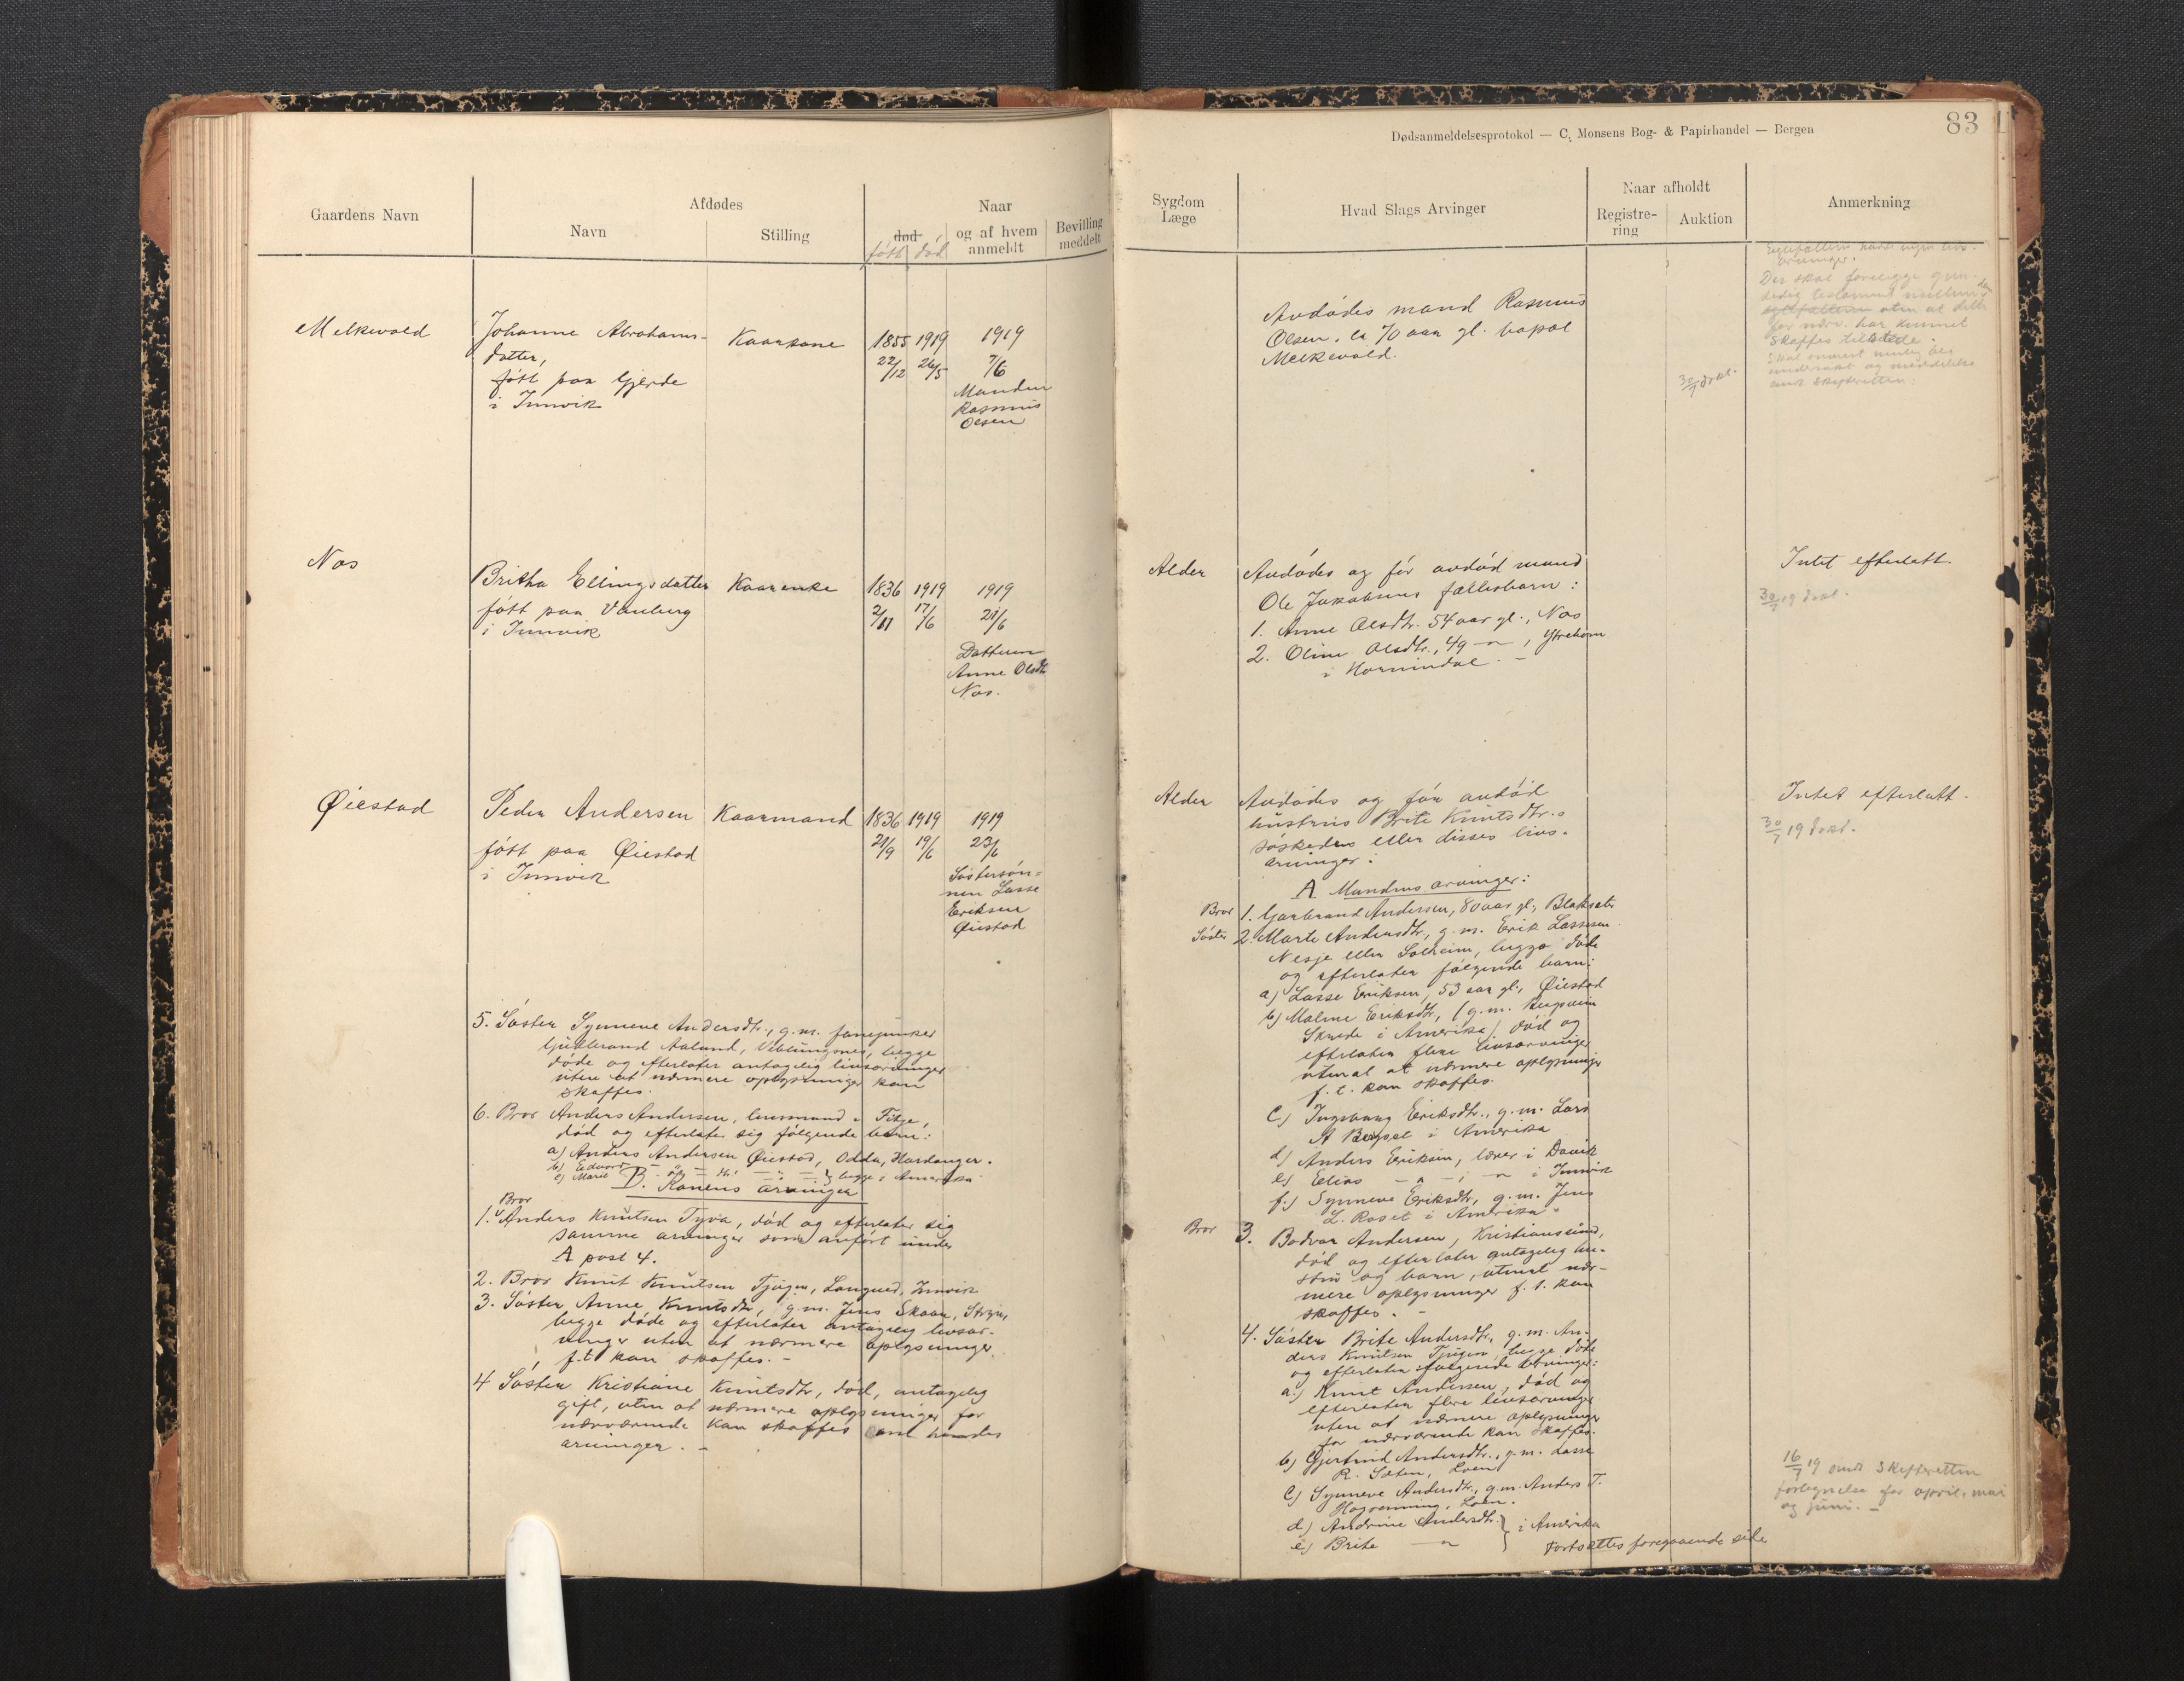 Dødsanmeldelsesprotokol — C. Monsens Bog- & Papirhandel — Bergen
83
Gaardens Navn
Afdødes
Navn
Stilling
Naar
død
født død
og af hvem
anmeldt
Bevilling
meddelt
Sygdom
Læge
Hvad Slags Arvinger
Naar afholdt
Registre-
ring
Auktion
Anmerkning
Melkevold
Johanne Abrahams-
datter,
født paa Gjerde
i Innvik
Kaarkone
1855 1919
22/12 26/5
1919
7/6
Manden
Rasmus
Olsen
Avdødes mand Rasmus
Olsen, ca 70 aar gl. bopæl
Melkevold.
Der skal foreligge gjen-
sidig testament mellem
uten at dette
har kunnet
skaffes tilstede.
Nos
Britha Ellingsdatter
født paa
i Innvik
Kaarenke
1836 1919
2/11 17/6
1919
21/6
Datteren
Anne Olsdtr
Nos.
Alder
Avdødes og før avdød mand
Ole Jakobsens fællesbarn:
1. Anne Olsdtr. 54 aar gl., Nos
2. Oline Olsdtr., 49 — " — , Ytrehorn
i Hornindal. –
Intet efterlatt.
30/7 19
Øiestad
Peder Andersen
født paa Øiestad
i Innvik
Kaarmand
1836 1919
21/9 19/6
1919
23/6
Søstersøn-
nen Lasse
Eriksen
Øiestad
Alder
Avdødes og før avdød
hustrus Brite Knutsdtr.s
søskedes eller disses livs-
arvinger:
Intet efterlatt.
30/7 19
A Mandens arvinger:
Bror 1. Garbrand Andersen, 80 aar gl., Blaksæter
Søster 2. Marte Andersdtr., g.m. Erik Lassesen
Nesje eller Solheim, begge døde
og efterlater følgende barn:
a) Lasse Eriksen, 53 aar gl., Øiestad
b) Malene Eriksdtr, (g.m.
Skrede i Amerika) død og
efterlater flere livsarvinger
uten at nærmere oplysninger
f. t. kan skaffes.
c) Ingeborg Eriksdtr., g.m. Lars
A Bergset i Amerika
d) Anders Eriksen, lærer i Davik
e) Elias — " — , — " — i Innvik
f.) Synneve Eriksdtr, g.m. Jens
L. Roset i Amerika.
Bror 3. Bodvar Andersen, Kristiansund,
død og efterlater antagelig hu-
stru og barn, utenat nær-
mere oplysninger f. t. kan
skaffes. –
4. Søster Brite Andersdtr., g.m. An-
ders Knutsen Tjugen, begge døde
og efterlater følgende arvinger:
a.) Knut Andersen, død og
efterlater flere livsarvinger
uten at nærmere oplysninger
for nærværende kan skaffes.
b) Gjertrud Andersdtr., g.m. Lasse
R. Sæten, Loen
c) Synneve Andersdtr., g.m. Anders T.
Hagrenning, Loen.
d) Andrine Andersdtr. } i Amerika
e) Brite — " —
Fortsættes foregaaende side
5. Søster Synneve Andersdtr., g.m. fanejunker
Gudbrand Aaland, Veblungsnes, begge
døde og efterlater antagelig livsarvinger
uten at nærmere oplysninger kan
skaffes.
6. Bror Anders Andersen, lensmand i
død og efterlater sig følgende barn:
a) Anders Andersen Øiestad, Odda, Hardanger.
b) Edvart
c) Marit
} begge i Amerika
B. Konens arvinger
Bror
1. Anders Knutsen Tjugen, død og efterlater sig
samme arvinger som anført under
A post 4.
2. Bror Knut Knutsen Tjugen, Langesed, Innvik
3. Søster Anne Knutsdtr, g.m. Jens Skaar, Stryn,
begge døde og efterlater antagelig livsar-
vinger uten at nærmere oplysninger
f. t. kan skaffes. –
4 Søster Kristiane Knutsdtr, død, antagelig
gift, uten at nærmere oplysninger for
nærværende kan skaffes om hendes
arvinger. –
16/7 19 sendt Skifteretten
fortegnelse for april, mai
og juni. –